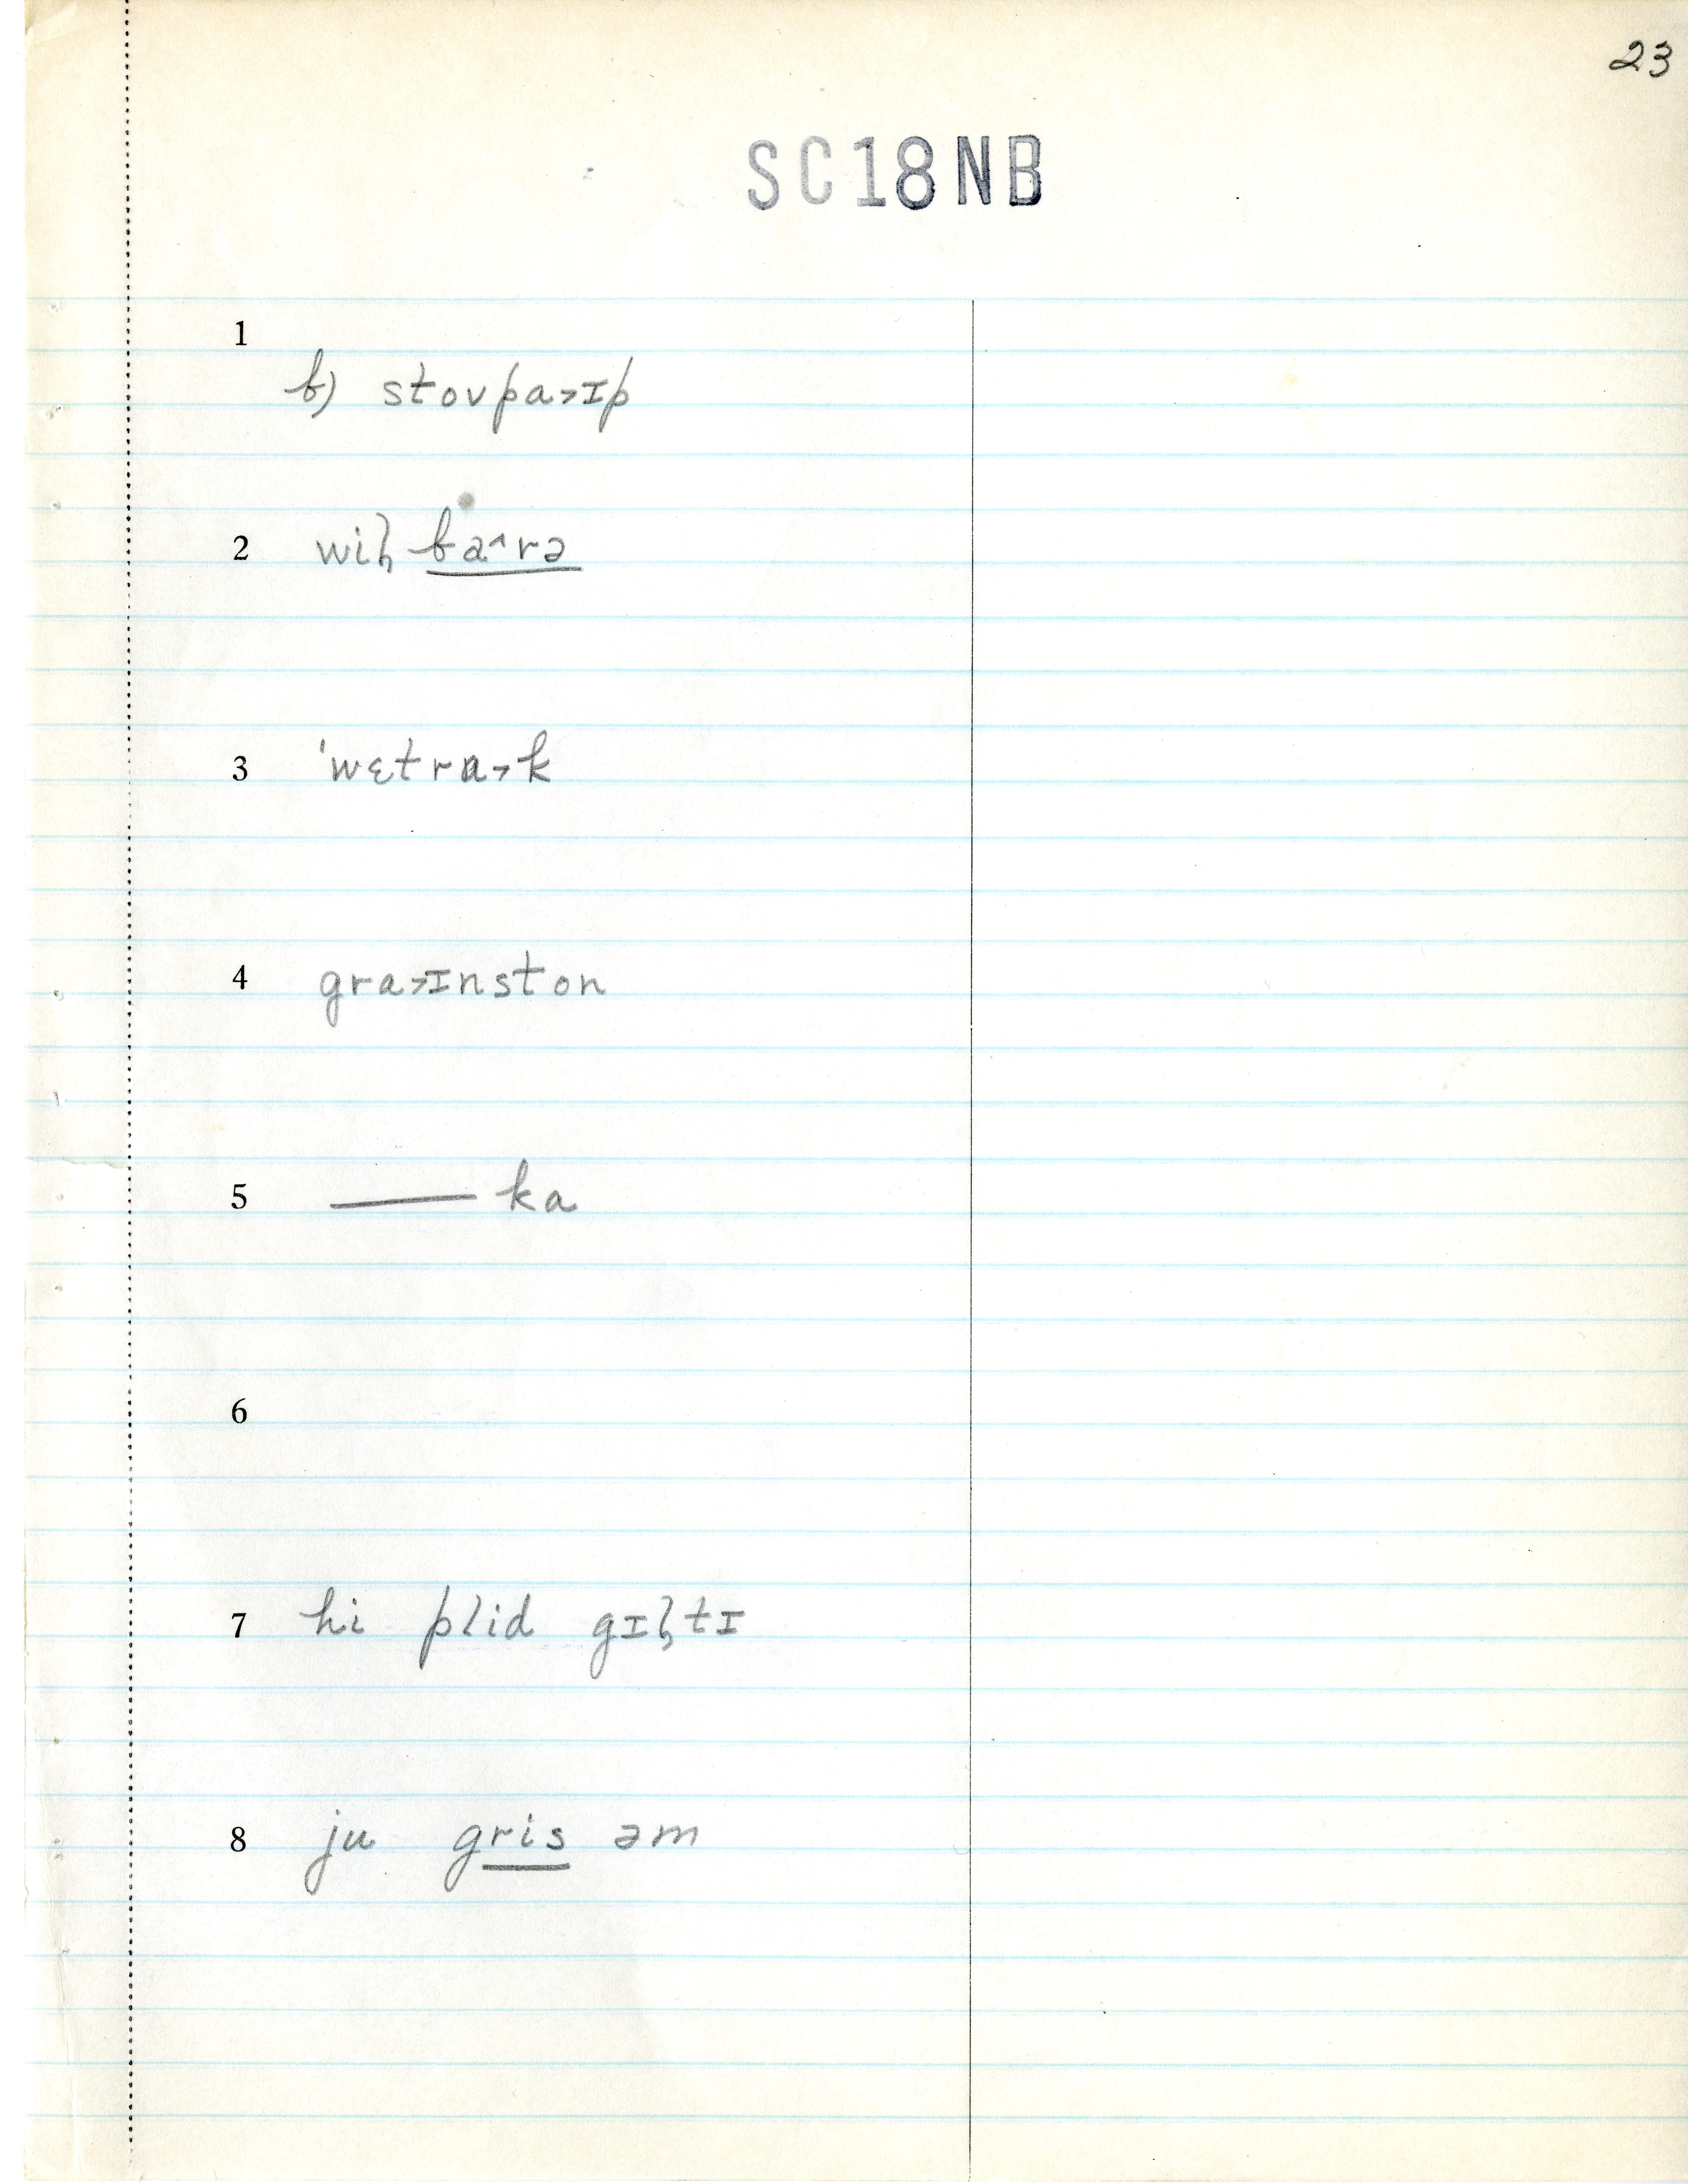 23
SC18NB
1
b) stovpa˃ɪp
2 wil̥ ba˄rə
3 ˈwɛtrɑ˃k
4 gra˃ɪnston
5 —— ka
6
7 hi plid gɪl̥tɪ
8 ju gris əm